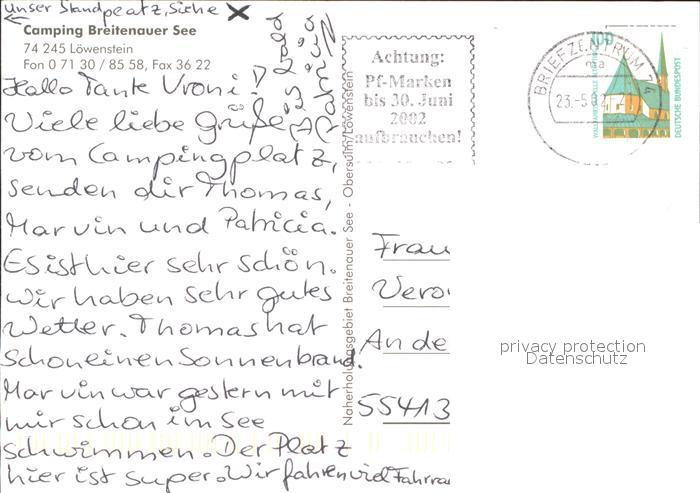 unser Standpeatz, Siehe X
Camping Breitenauer See
74 245 Löwenstein
Fon 0 71 30 / 85 58, Fax 36 22
Hallo Tante Vroni!
Viele liebe Grüße
vom Campingplatz,
senden dir Thomas,
Marvin und Patricia.
Es ist hier sehr schön.
Wir haben sehr gutes
Wetter. Thomas hat
schon einen Sonnenbrand.
Marvin war gestern mit
mir schon im See
schwimmen. Der Platz
hier ist super. Wir fahren viel Fahrra
Naherholungsgebiet Breitenauer See - Obersulm/Löwenstein
Achtung:
Pf-Marken
bis 30. Juni
2002
aufbrauchen!
BRIEFZENTRUM 74
ma
23.-5.02
100
DEUTSCHE BUNDESPOST
Frau
Vero
An de
55413
privacy protection
Datenschutz